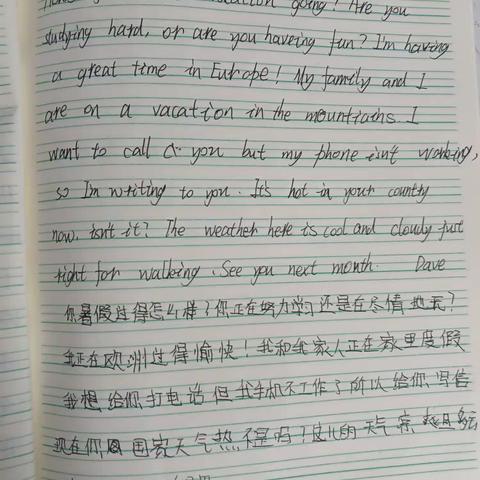 vacation going? Are you
studying hard, or are you haveing fun? I'm having
a great time in Europe! My family and I
are on a vacation in the mountiaths. I
want to call you but my phone isn't working,
so I'm writing to you. It's hot in your county
now. isn't it? The weather here is cool and cloudy just
right for walking. See you next month. Dave
你暑假过得怎么样？你正在努力学习还是在尽情地玩？
我正在欧洲过得愉快！我和我家人正在家里度假
我想给你打电话但我手机不工作了所以给你写信
现在你国家天气热不是吗？这儿的天气凉爽且多云